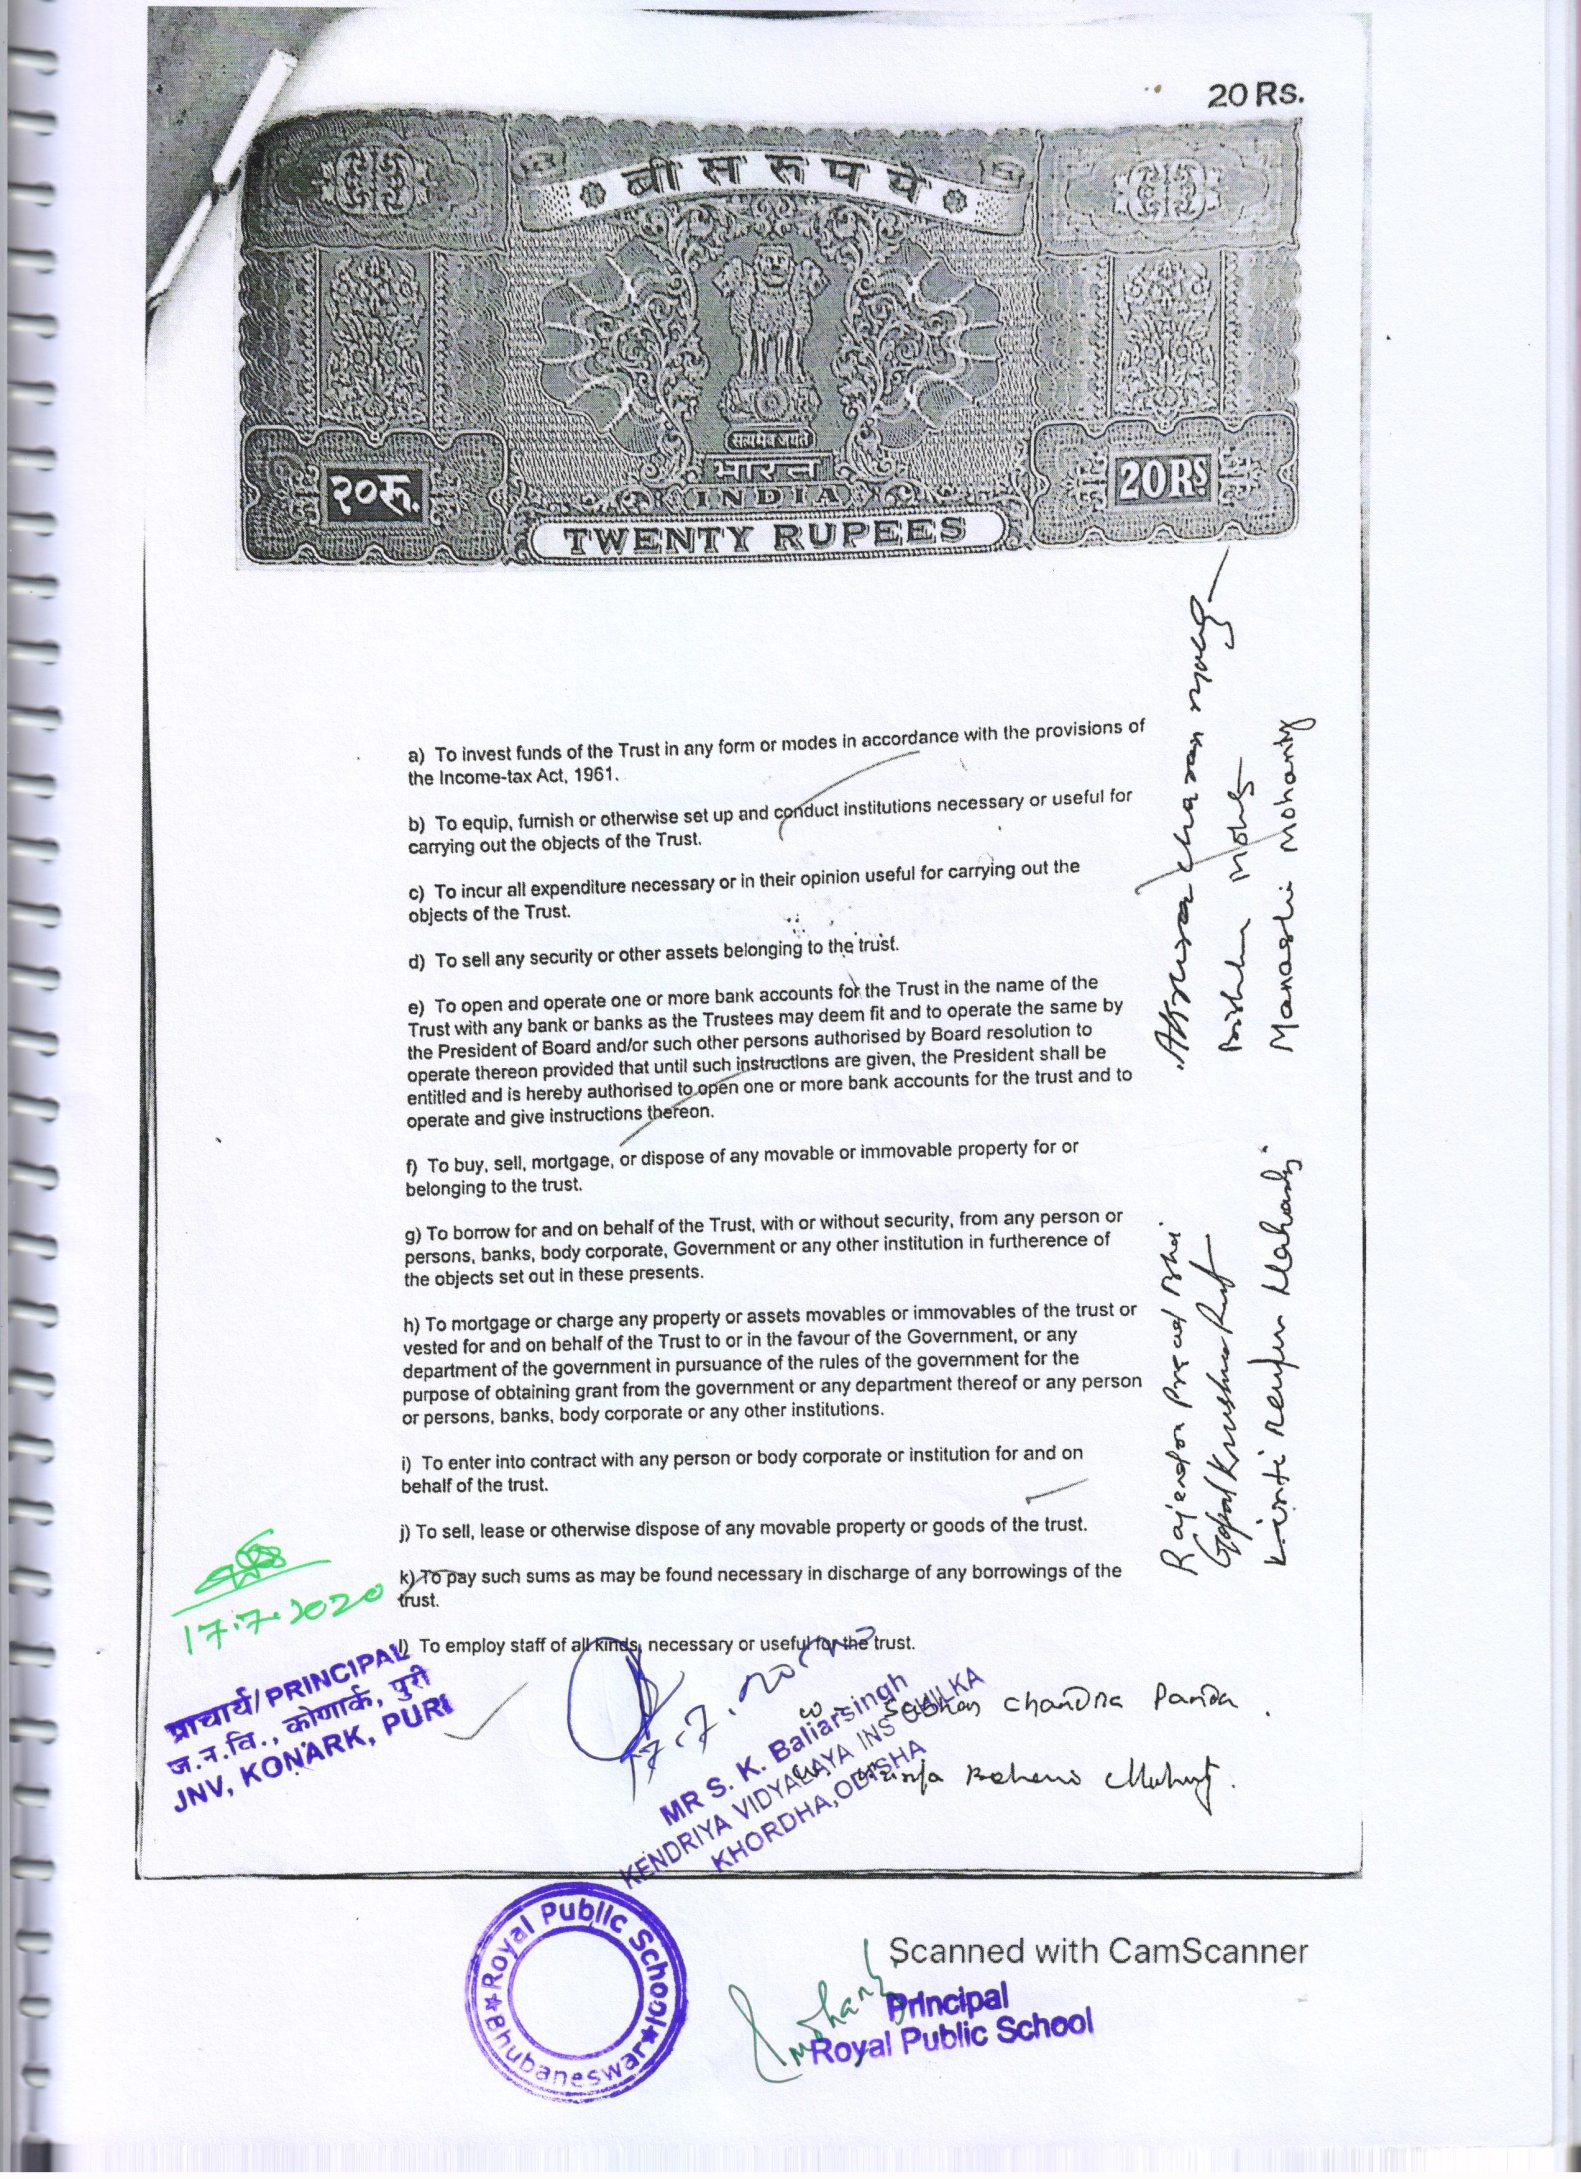 20 Rs.
बीस रुपये
सत्यमेव जयते
भारत
INDIA
२०रू.
20RS
TWENTY RUPEES
a) To invest funds of the Trust in any form or modes in accordance with the provisions of
the Income-tax Act, 1961.
b) To equip, furnish or otherwise set up and conduct institutions necessary or useful for
carrying out the objects of the Trust.
c) To incur all expenditure necessary or in their opinion useful for carrying out the
objects of the Trust.
d) To sell any security or other assets belonging to the trust.
e) To open and operate one or more bank accounts for the Trust in the name of the
Trust with any bank or banks as the Trustees may deem fit and to operate the same by
the President of Board and/or such other persons authorised by Board resolution to
operate thereon provided that until such instructions are given, the President shall be
entitled and is hereby authorised to open one or more bank accounts for the trust and to
operate and give instructions thereon.
f) To buy, sell, mortgage, or dispose of any movable or immovable property for or
belonging to the trust.
g) To borrow for and on behalf of the Trust, with or without security, from any person or
persons, banks, body corporate, Government or any other institution in furtherence of
the objects set out in these presents.
h) To mortgage or charge any property or assets movables or immovables of the trust or
vested for and on behalf of the Trust to or in the favour of the Government, or any
department of the government in pursuance of the rules of the government for the
purpose of obtaining grant from the government or any department thereof or any person
or persons, banks, body corporate or any other institutions.
i) To enter into contract with any person or body corporate or institution for and on
behalf of the trust.
j) To sell, lease or otherwise dispose of any movable property or goods of the trust.
k) To pay such sums as may be found necessary in discharge of any borrowings of the
trust.
l) To employ staff of all kinds, necessary or useful for the trust.
Charan
Manashi Mohanty
Rajendra Prasad
Gopal Krushna
17.7.2020
प्राचार्य/PRINCIPAL
ज.न.वि., कोणार्क, पुरी
JNV, KONARK, PURI
17.7.2020
Chandra Panda
MR S. K. Baliarsingh
KENDRIYA VIDYALAYA INS CHILKA
KHORDHA, ODISHA
Royal Public School
Bhubaneswar
Scanned with CamScanner
Principal
Royal Public School